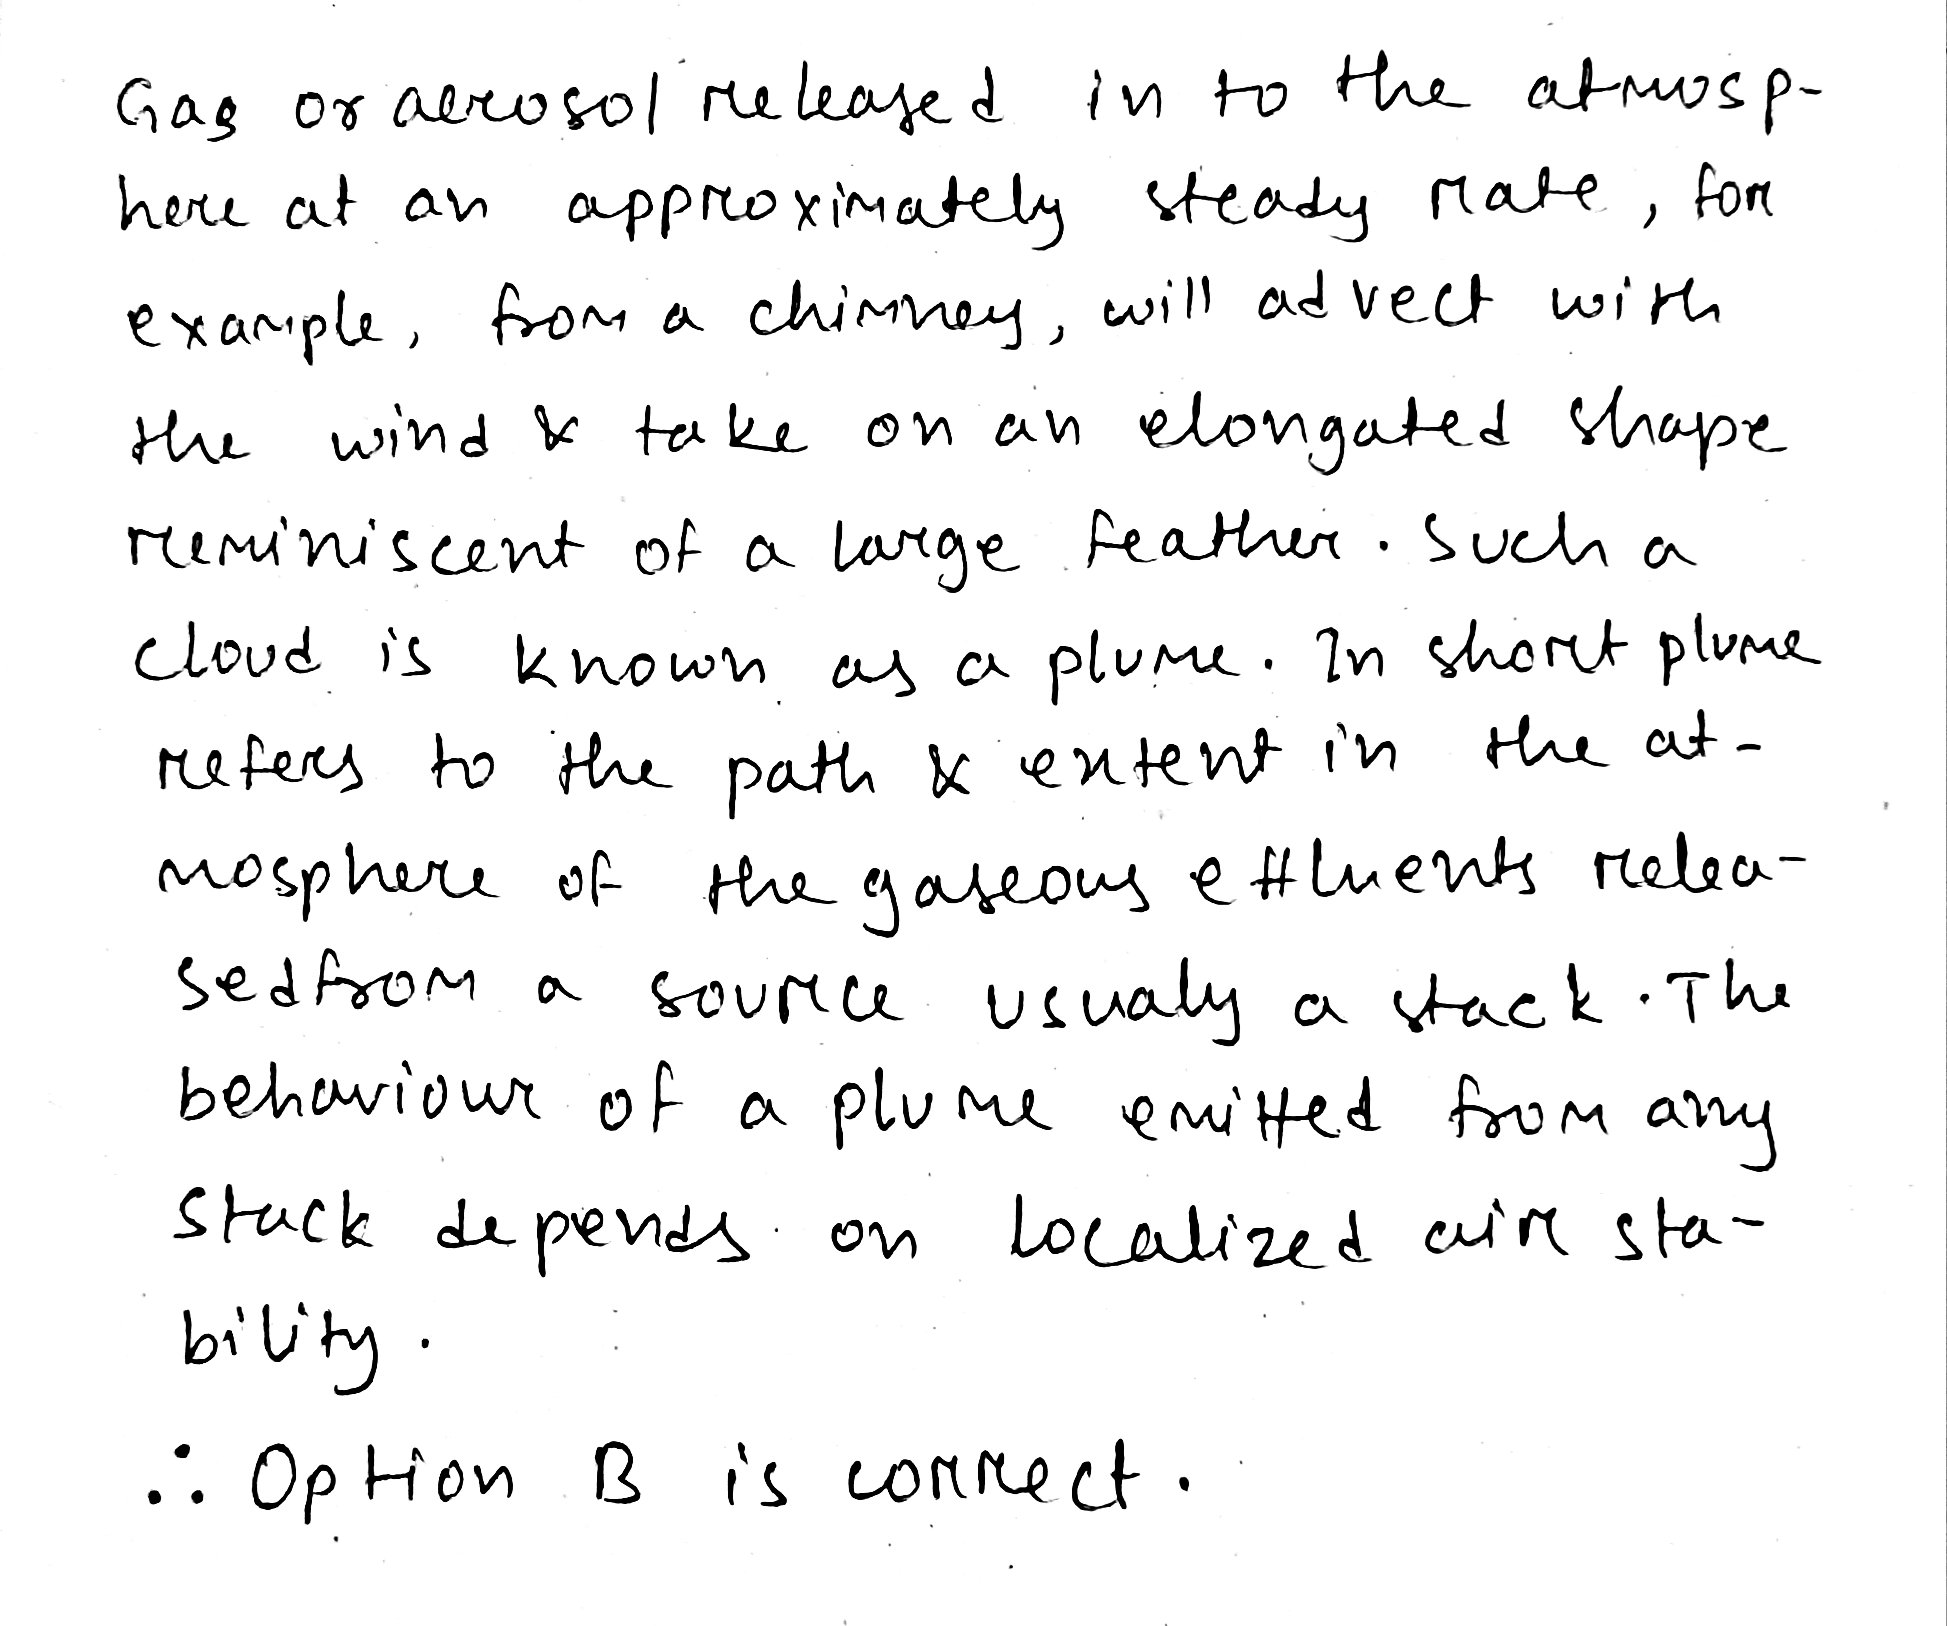 Gas or aerosol released in to the atmosp-
here at an approximately steady rate, for
example, from a chimney, will advect with
the wind & take on an elongated shape
reminiscent of a large feather. Such a
cloud is known as a plume. In short plume
refers to the path & extent in the at-
mosphere of the gaseous effluents relea-
sedfrom a source usualy a stack. The
behaviour of a plume emitted from any
stack depends on localized air sta-
bility.
∴ Option B is correct.